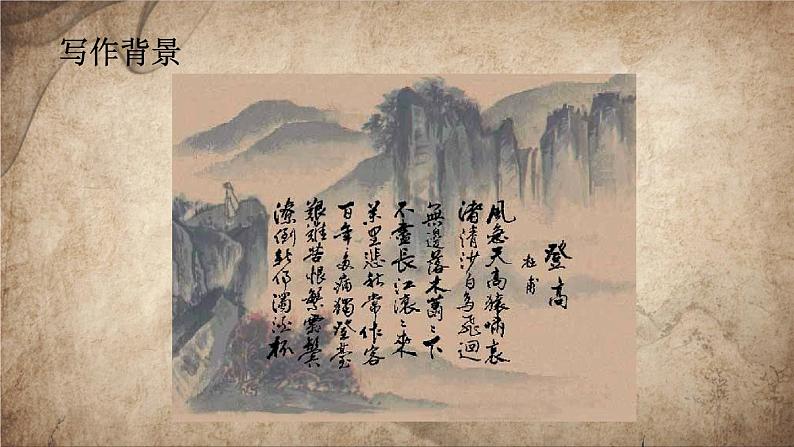 写作背景
登高
杜甫
風急天高猿嘯哀
渚清沙白鳥飛迴
無邊落木蕭〻下
不盡長江滾〻來
萬里悲秋常作客
百年多病獨登臺
艱難苦恨繁霜鬢
潦倒新停濁酒杯